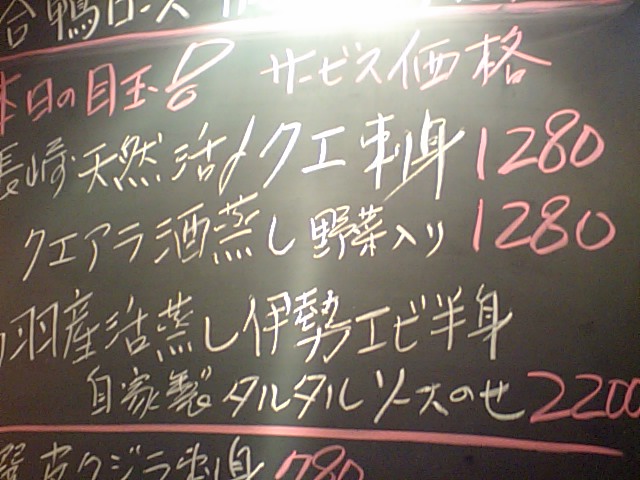 合鴨ロース
本日の目玉品 サービス価格
長崎天然活〆クエ刺身 1280
クエアラ酒蒸し野菜入り 1280
羽産活蒸し伊勢エビ半身
自家製タルタルソースのせ 2200
皮クジラ刺身 780